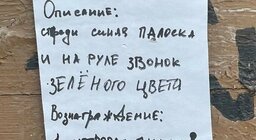 Описание:
спреди синяя палоска
и на руле звонок
зелёного цвета
Вознаграждение: